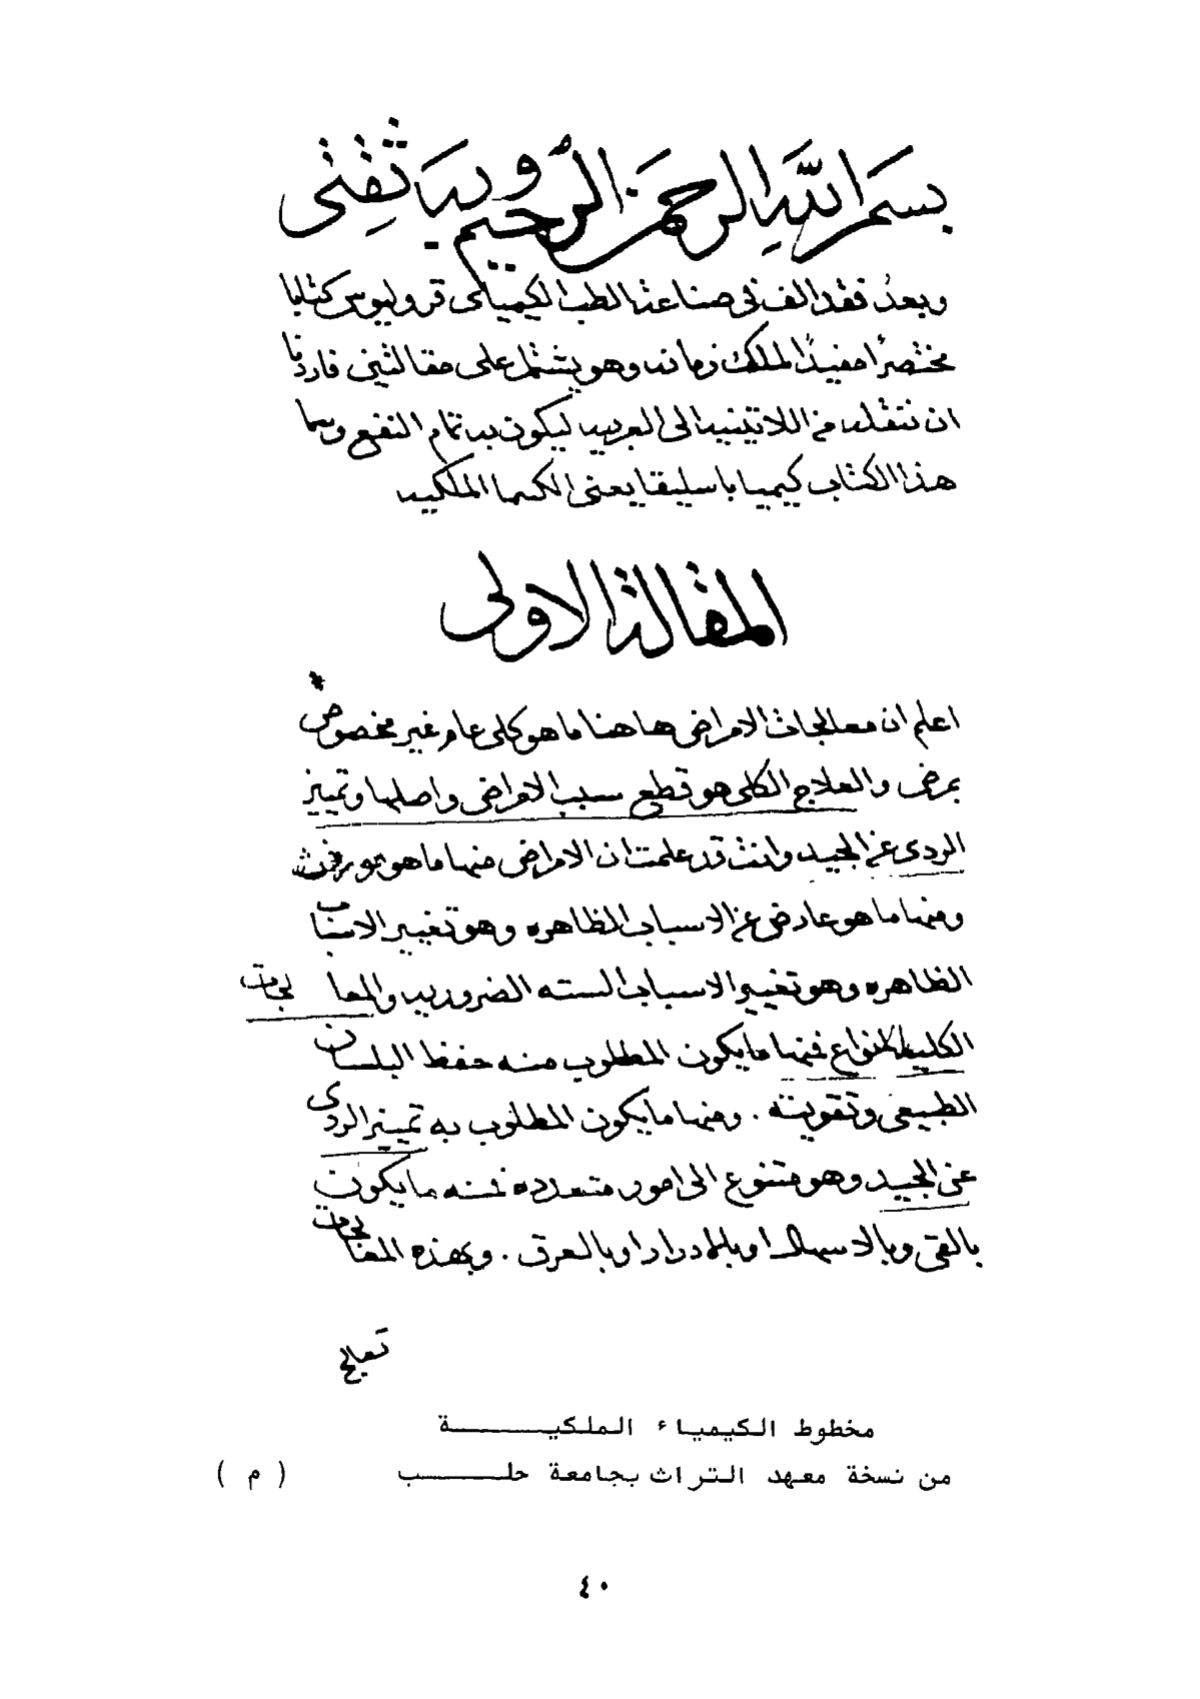 بسم الله الرحمن الرحيم وبه ثقتى
وبعد فقد الف فى صناعة الطب الكيمياى قروليوس كتابا
مختصرا مفيدا لملك زمانه وهو يشتمل على مقالتين فاردنا
ان ننقله من اللاتينيه الى العربيه ليكون به تمام النفع وسما
هذا الكتاب كيميا باسليقا يعنى الكيميا الملكيه
المقالة الاولى
اعلم ان معالجات الامراض هاهنا ما هو كلى عام غير مخصوص
بمرض والعلاج الكلى هو قطع سبب الامراض واصلها وتميز
الردى عن الجيد وانت قد علمت ان الامراض منها ما هو موروث
ومنها ما هو عارض عن الاسباب الظاهره وهو تغيير الاسباب
الظاهره وهو تغيير الاسباب السته الضروريه والمعالجات
الكلية انواع فمنها ما يكون المطلوب منه حفظ البلسان
الطبيعى وتقويته . ومنها ما يكون المطلوب به تميز الردى
عن الجيد وهو متنوع الى امور متعدده فمنه ما يكون
بالقى وبالاسهال او بالادرار او بالعرق . وبهذه المعالجات
تعالج
مخطوط الكيمياء الملكيــــــة
من نسخة معهد التراث بجامعة حلــــب ( م )
٤٠